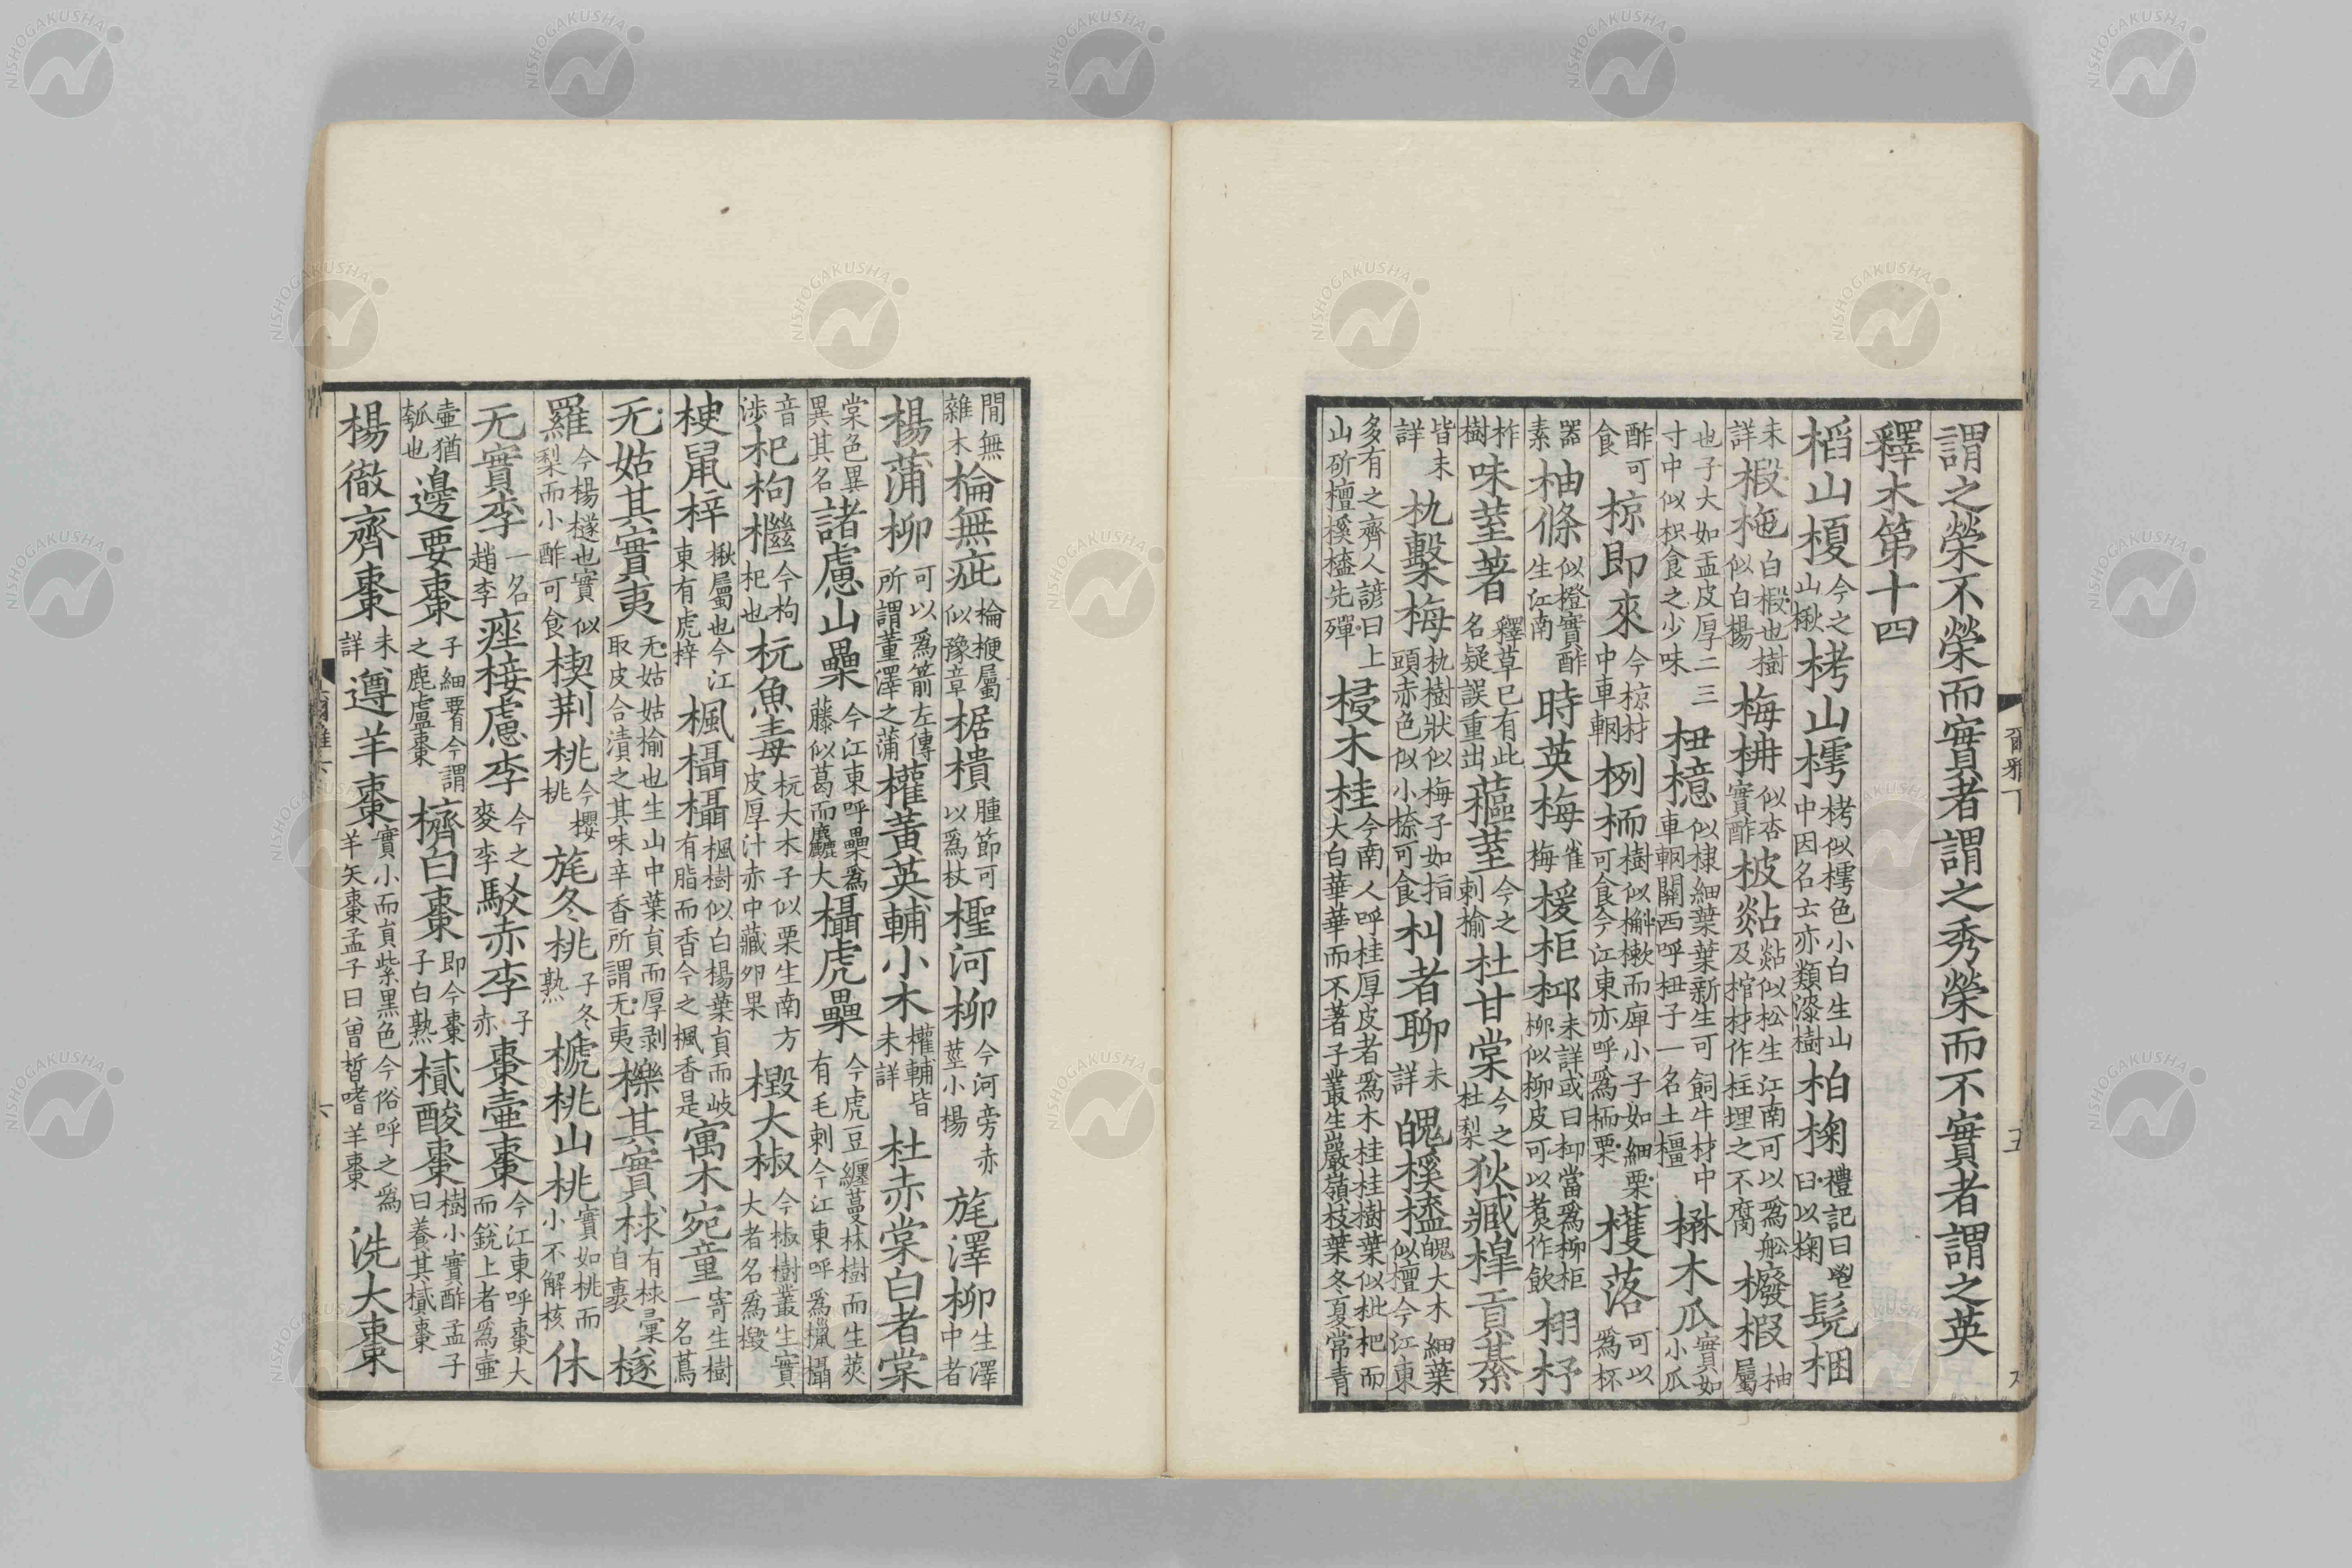 謂之榮不榮而實者謂之秀榮而不實者謂之英
釋木第十四
槄山榎今之山楸栲山樗栲似樗色小白生山中因名云亦類漆樹柏椈禮記曰鬯曰以椈髡梱
未詳椴柂白椴也樹似白楊梅柟似杏實酢柀煔煔似松生江南可以為舩及棺材作柱埋之不腐櫠椵柚屬
也子大如盂皮厚二三寸中似枳食之少味杻檍似棣細葉葉新生可飼牛材中車輞關西呼杻子一名土橿楙木瓜實如小瓜
酢可食椋即來今椋材中車輞栵栭樹似槲樕而庳小子如細栗可食今江東亦呼爲栭栗檴落可以爲杯
器素柚條似橙實酢生江南時英梅雀梅楥柜桏未詳或曰桏當爲柳柜柳似柳皮可以煑作飲栩杼
柞樹味荎著釋草已有此名疑誤重出蓲荎今之刺榆杜甘棠今之杜梨狄臧槔貢綦
皆未詳朹檕梅朹樹狀似梅子如指頭赤色似小㮏可食朻者聊未詳魄榽橀魄大木細葉似檀今江東
多有之齊人諺曰上山斫檀榽橀先殫梫木桂今南人呼桂厚皮者爲木桂桂樹葉似枇杷而大白華華而不著子叢生巖嶺枝葉冬夏常青
爾雅下
五
閒無雜木棆無疵棆梗屬似豫章椐樻腫節可以爲杖檉河柳今河旁赤莖小楊旄澤柳生澤中者
楊蒲柳可以爲箭左傳所謂董澤之蒲權黃英輔小木權輔皆未詳杜赤棠白者棠
棠色異異其名諸慮山櫐今江東呼櫐爲藤似葛而麤大欇虎櫐今虎豆纏蔓林樹而生莢有毛刺今江東呼爲㯿欇
音涉杞枸檵今枸杞也杬魚毒杬大木子似栗生南方皮厚汁赤中藏卵果檓大椒今椒樹叢生實大者名爲檓
楰鼠梓楸屬也今江東有虎梓楓欇欇楓樹似白楊葉員而岐有脂而香今之楓香是寓木宛童寄生樹一名蔦
无姑其實夷无姑姑榆也生山中葉員而厚剥取皮合漬之其味辛香所謂无夷櫟其實梂有梂彙自裹檖
羅今楊檖也實似梨而小酢可食楔荆桃今櫻桃旄冬桃子冬熟榹桃山桃實如桃而小不解核休
无實李一名趙李痤椄慮李今之麥李駁赤李子赤棗壺棗今江東呼棗大而銳上者爲壷
壷猶瓠也邊要棗子細腰今謂之鹿盧棗櫅白棗即今棗子白熟樲酸棗樹小實酢孟子曰養其樲棗
楊徹齊棗未詳遵羊棗實小而員紫黑色今俗呼之爲羊矢棗孟子曰曾皙嗜羊棗洗大棗
六
NISHOGAKUSHA